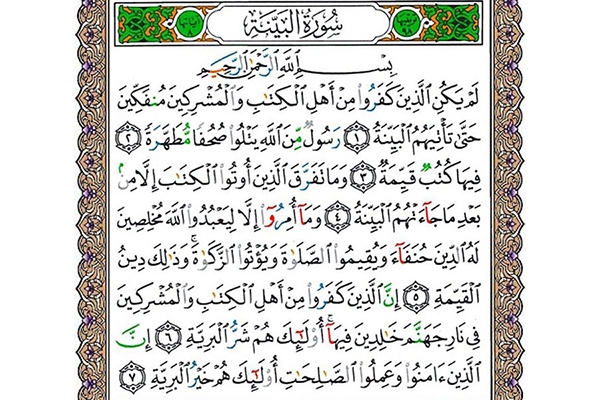 سُورَةُ الْبَيِّنَةِ
بِسْمِ ٱللَّهِ ٱلرَّحْمَٰنِ ٱلرَّحِيمِ
لَمْ يَكُنِ ٱلَّذِينَ كَفَرُوا۟ مِنْ أَهْلِ ٱلْكِتَٰبِ وَٱلْمُشْرِكِينَ مُنفَكِّينَ
حَتَّىٰ تَأْتِيَهُمُ ٱلْبَيِّنَةُ ١ رَسُولٌ مِّنَ ٱللَّهِ يَتْلُوا۟ صُحُفًا مُّطَهَّرَةً ٢
فِيهَا كُتُبٌ قَيِّمَةٌ ٣ وَمَا تَفَرَّقَ ٱلَّذِينَ أُوتُوا۟ ٱلْكِتَٰبَ إِلَّا مِنۢ
بَعْدِ مَا جَآءَتْهُمُ ٱلْبَيِّنَةُ ٤ وَمَآ أُمِرُوٓا۟ إِلَّا لِيَعْبُدُوا۟ ٱللَّهَ مُخْلِصِينَ
لَهُ ٱلدِّينَ حُنَفَآءَ وَيُقِيمُوا۟ ٱلصَّلَوٰةَ وَيُؤْتُوا۟ ٱلزَّكَوٰةَ ۚ وَذَٰلِكَ دِينُ
ٱلْقَيِّمَةِ ٥ إِنَّ ٱلَّذِينَ كَفَرُوا۟ مِنْ أَهْلِ ٱلْكِتَٰبِ وَٱلْمُشْرِكِينَ
فِى نَارِ جَهَنَّمَ خَٰلِدِينَ فِيهَآ ۚ أُو۟لَٰٓئِكَ هُمْ شَرُّ ٱلْبَرِيَّةِ ٦ إِنَّ
ٱلَّذِينَ ءَامَنُوا۟ وَعَمِلُوا۟ ٱلصَّٰلِحَٰتِ أُو۟لَٰٓئِكَ هُمْ خَيْرُ ٱلْبَرِيَّةِ ٧